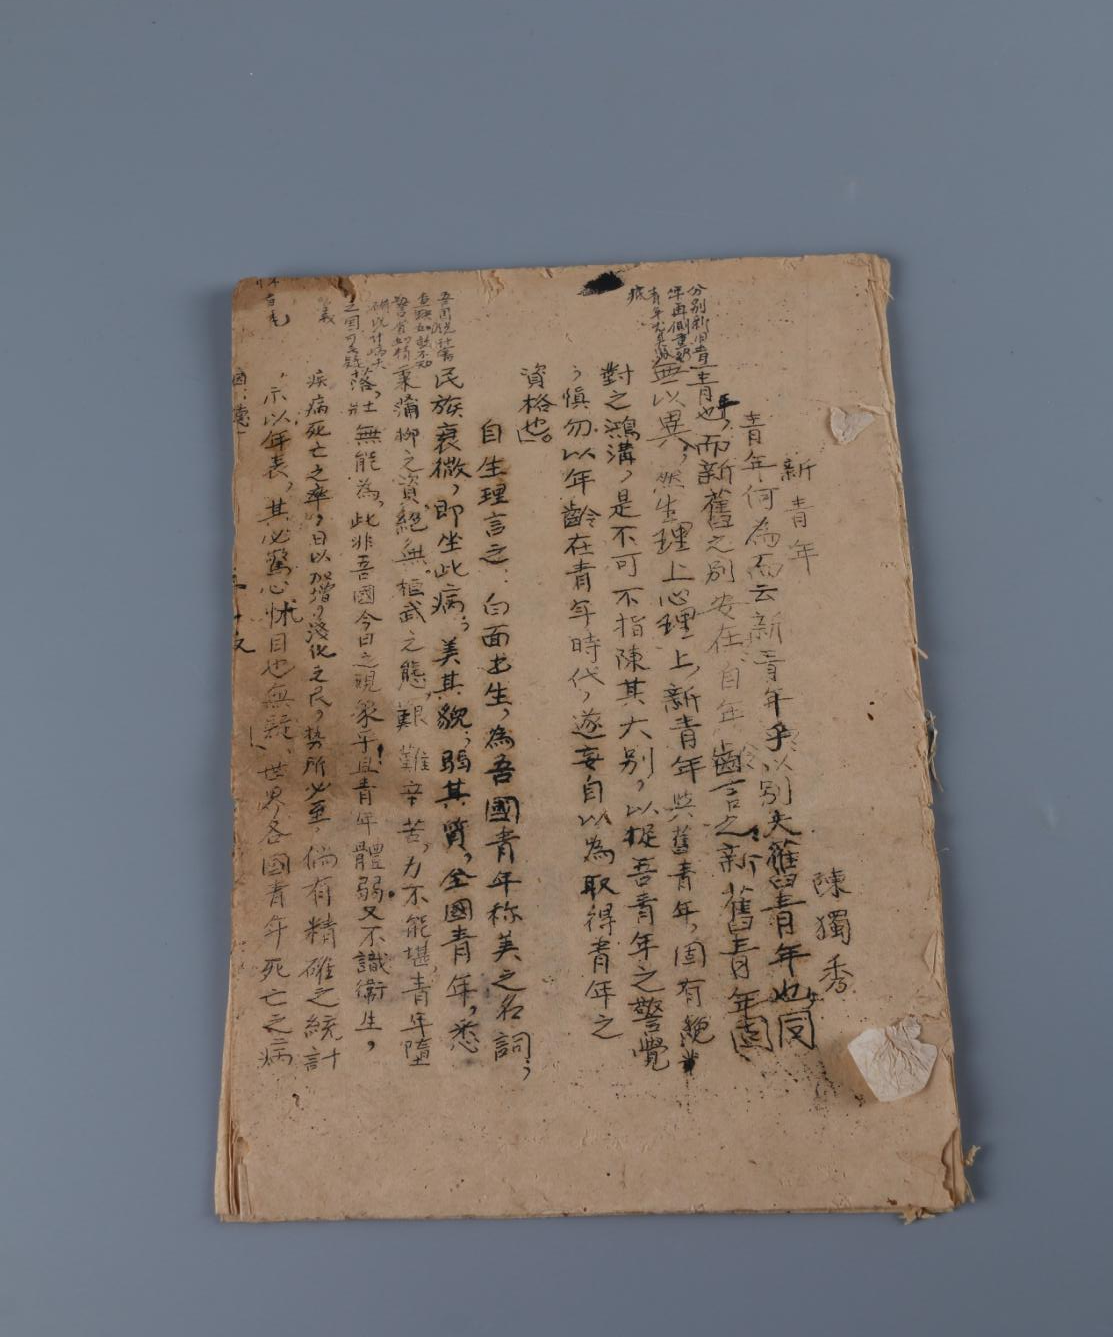 新青年
陳獨秀
青年何為而云新青年乎以別夫舊青年也同
青年也,而新舊之別安在自年齡言之新舊青年固
無以異,然生理上心理上,新青年與舊青年,固有絕
對之鴻溝,是不可不指陳其大別,以促吾青年之警覺
,慎勿以年齡在青年時代,遂妄自以為取得青年之
資格也。
自生理言之.白面書生,為吾國青年称美之名詞,
民族衰微,即坐此病,美其貌,弱其質,全國青年,悉
秉蒲柳之資,絕無桓武之態,艱難辛苦,力不能堪,青年墮
落,壯無能為,此非吾國今日之現象乎!且青年體弱又不識衛生,
疾病死亡之率,日以加增,淺化之民,勢所必至,倘有精確之統計
,示以年表,其必驚心怵目也無疑,世界各國青年死亡之病
分別新旧青
年再側重新
青年尤其